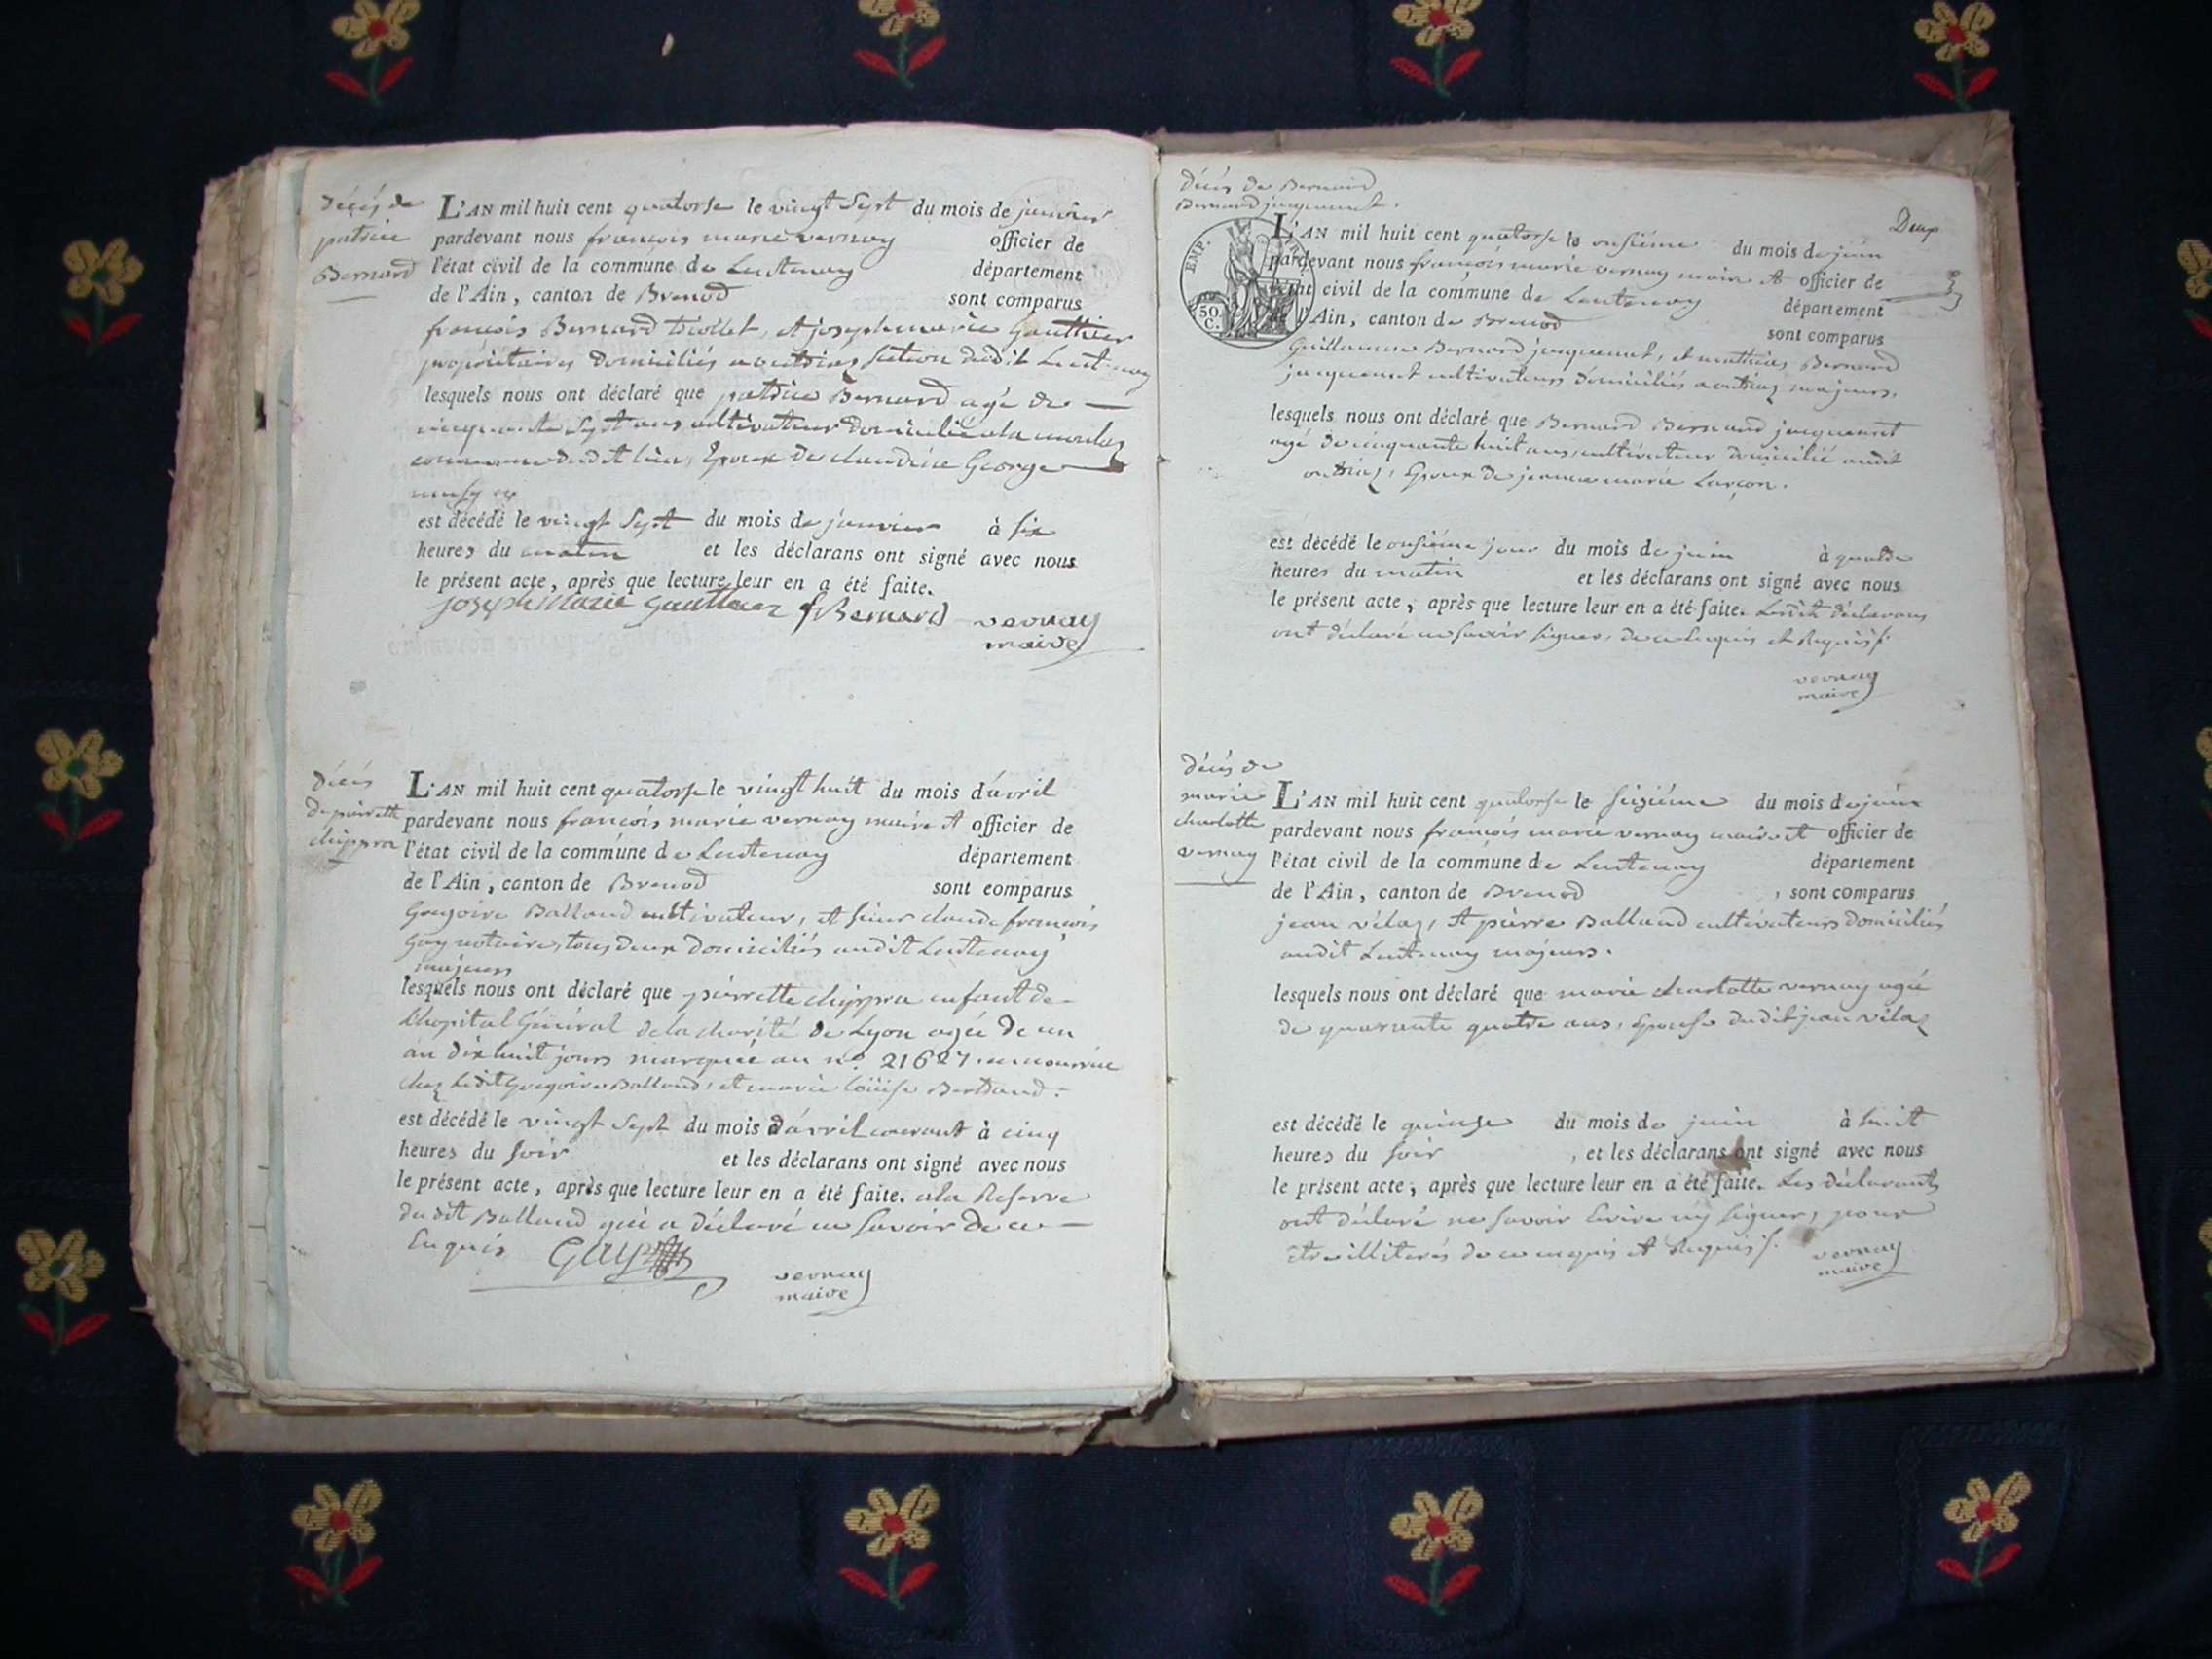 Décès de
patrice
Bernard
L'AN mil huit cent quatorse le vingt Sept du mois de janvier
pardevant nous françois marie vernay officier de
l'état civil de la commune de Lentenay département
de l'Ain, canton de Brenod sont comparus
françois Bernard , et joseph marie Gauthier
propriétaires Domiciliés a outriaz Section dudit Lentenay
lesquels nous ont déclaré que patrice Bernard agé de
cinquante Sept ans cultivateur domicilié a la
commune dudit lieu, Epoux de claudine George
est décédé le vingt Sept du mois de janvier à Six
heures du matin et les déclarans ont signé avec nous
le présent acte, après que lecture leur en a été faite.
joseph Marie Gauthier f Bernard vernay
maire
Décès
de pierrette
chippra
L'AN mil huit cent quatorse le vingt huit du mois d'avril
pardevant nous françois marie vernay maire et officier de
l'état civil de la commune de Lentenay département
de l'Ain, canton de Brenod sont comparus
Gregoire Balland cultivateur, et sieur claude françois
Guy notaire, tous deux domiciliés audit Lentenay
majeurs
lesquels nous ont déclaré que pierrette chippra enfant de
l'hopital Général de la charité de Lyon agée de un
an dix huit jours marquée au n.o 21627. en nourrice
chez ledit Gregoire Balland, et marie loüise Bertrand.
est décédé le vingt Sept du mois d'avril courant à cinq
heures du soir et les déclarans ont signé avec nous
le présent acte, après que lecture leur en a été faite. a la Reserve
du dit Balland qui a déclaré ne Savoir de ce
Enquis Guy
vernay
maire
Décès de Bernard
Bernard jacquemet.
L'AN mil huit cent quatorse le onsiéme du mois de juin
pardevant nous françois marie vernay maire et officier de
l'état civil de la commune de Lentenay département
de l'Ain, canton de Brenod sont comparus
EMP. 50 C.
Guillaume Bernard jacquemet, et mathieu Bernard
jacquemet cultivateurs domiciliés a outriaz majeurs.
lesquels nous ont déclaré que Bernard Bernard jacquemet
agé de cinquante huit ans, cultivateur domicilié audit
outriaz, Epoux de jeanne marie Larçon.
est décédé le onsiéme jour du mois de juin à quatre
heures du matin et les déclarans ont signé avec nous
le présent acte, après que lecture leur en a été faite. Lesdit déclarans
ont déclaré ne savoir signer, de ce Enquis et Requis
vernay
maire
Décès de
marie
charlotte
vernay
L'AN mil huit cent quatorse le seiziéme du mois de juin
pardevant nous françois marie vernay maire et officier de
l'état civil de la commune de Lentenay département
de l'Ain, canton de Brenod , sont comparus
jean vélaz, et pierre Balland cultivateurs domiciliés
audit Lentenay majeurs.
lesquels nous ont déclaré que marie charlotte vernay agée
de quarante quatre ans, Epouse dudit jean vélaz
est décédé le quinze du mois de juin à huit
heures du soir , et les déclarans ont signé avec nous
le présent acte, après que lecture leur en a été faite. Les déclarants
ont déclaré ne savoir Ecrire ny signer, pour
être illiterés de ce enquis et Requis
vernay
maire